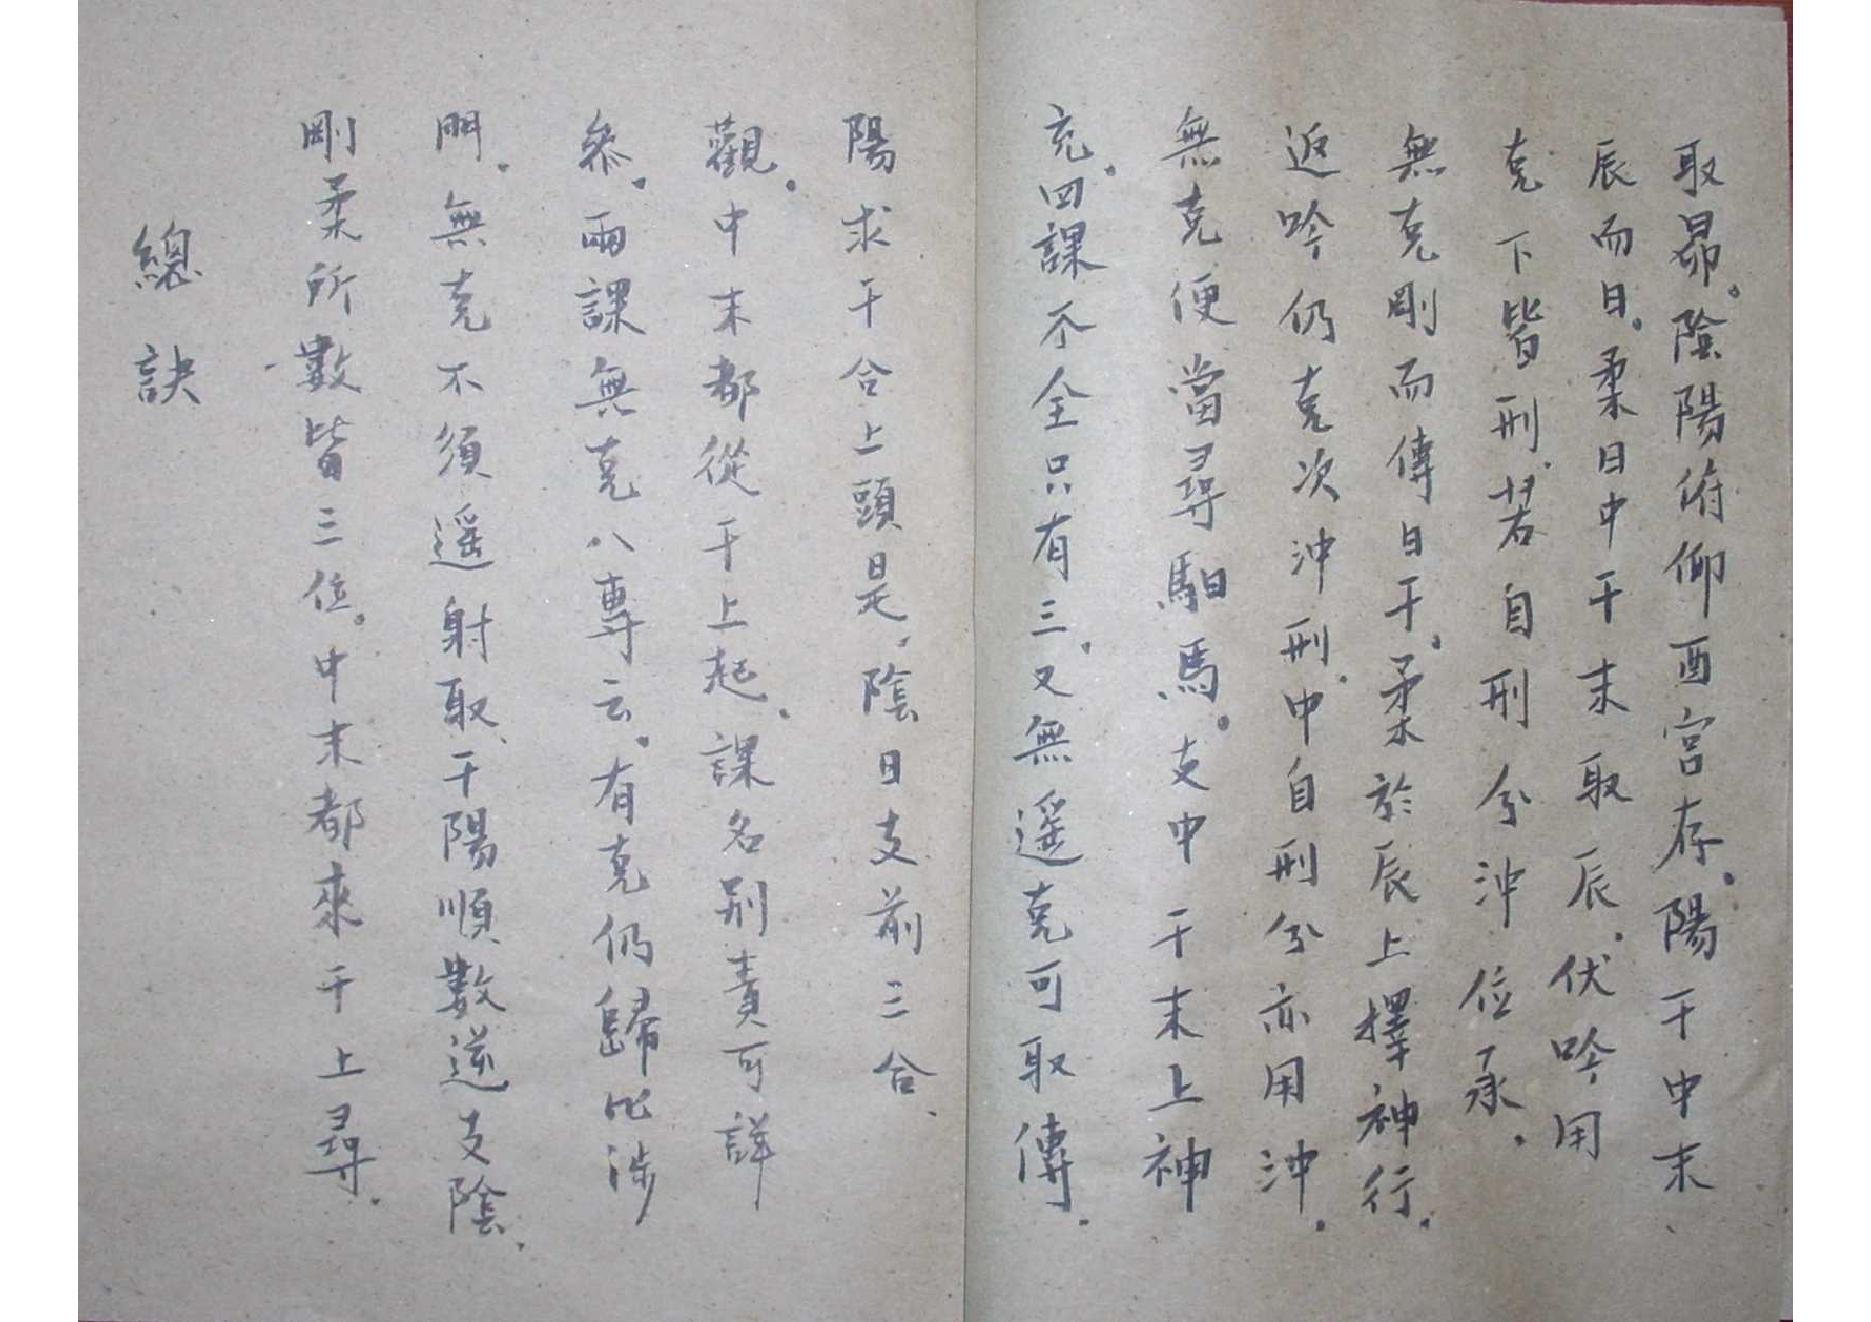 取昴。陰陽俯仰酉宮存。陽干中末、
辰而日。柔日中干末取辰。伏吟用
克下皆刑、若自刑兮沖位承。
無克剛而傳日干。柔於辰上擇神行。
返吟仍克次沖刑。中自刑兮亦用沖。
無克便當尋馹馬。支中干末上神
充。四課不全只有三、又無遥克可取傳。
陽求干合上頭是、陰日支前三合、
觀。中末都從干上起。課名别責可詳
叅。兩課無克八專云。有克仍歸比涉
門。無克不須遥射取、干陽順數逆支陰、
剛柔所數皆三位。中末都來干上尋。
總訣